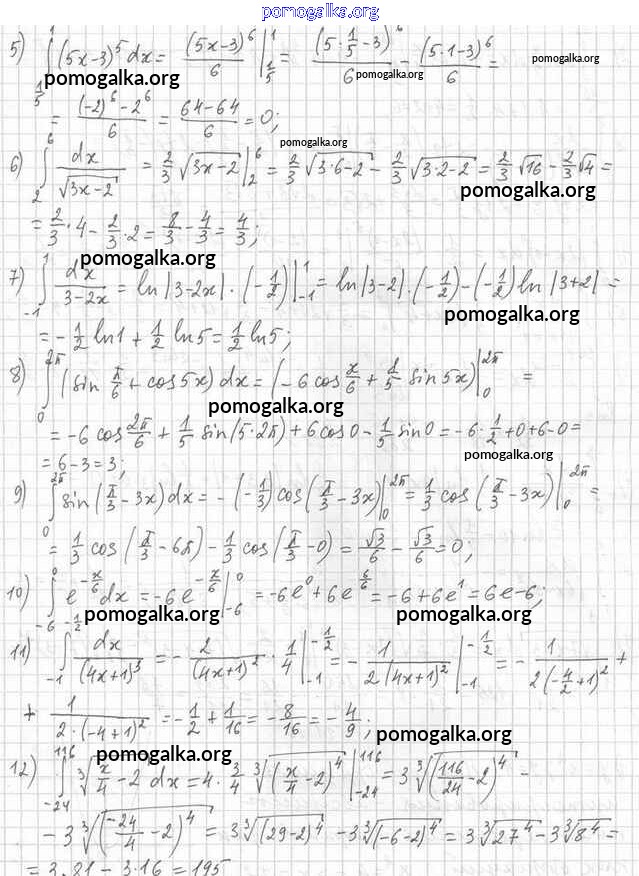 pomogalka.org
5) ∫_{1/5}^{1} (5x-3)^5 dx = (5x-3)^6/6 |_{1/5}^{1} = (5·1/5-3)^6/6 - (5·1-3)^6/6 = pomogalka.org
pomogalka.org pomogalka.org
= ((-2)^6-2^6)/6 = (64-64)/6 = 0;
pomogalka.org
6) ∫_{2}^{6} dx/√(3x-2) = 2/3 √(3x-2) |_{2}^{6} = 2/3 √(3·6-2) - 2/3 √(3·2-2) = 2/3 √16 - 2/3 √4 =
pomogalka.org
= 2/3·4 - 2/3·2 = 8/3 - 4/3 = 4/3;
pomogalka.org
7) ∫_{-1}^{1} dx/(3-2x) = ln|3-2x|·(-1/2) |_{-1}^{1} = ln|3-2|·(-1/2) - (-1/2) ln|3+2| =
pomogalka.org
= -1/2 ln1 + 1/2 ln5 = 1/2 ln5;
8) ∫_{0}^{2π} (sin π/6 + cos5x) dx = (-6 cos x/6 + 1/5 sin5x) |_{0}^{2π} =
pomogalka.org
= -6 cos 2π/6 + 1/5 sin(5·2π) + 6cos0 - 1/5 sin0 = -6·1/2 + 0 + 6 - 0 =
pomogalka.org
= 6-3 = 3;
9) ∫_{0}^{2π} sin(π/3 - 3x) dx = -(-1/3) cos(π/3 - 3x) |_{0}^{2π} = 1/3 cos(π/3 - 3x) |_{0}^{2π} =
= 1/3 cos(π/3 - 6π) - 1/3 cos(π/3 - 0) = √3/6 - √3/6 = 0;
10) ∫_{-6}^{0} e^{-x/6} dx = -6e^{-x/6} |_{-6}^{0} = -6e^0 + 6e^{6/6} = -6+6e^1 = 6e-6;
pomogalka.org pomogalka.org
11) ∫_{-1}^{-1/2} dx/(4x+1)^3 = -2/(4x+1)^2 · 1/4 |_{-1}^{-1/2} = -1/(2(4x+1)^2) |_{-1}^{-1/2} = -1/(2(-4/2+1)^2) +
+ 1/(2·(-4+1)^2) = -1/2 + 1/16 = -8/16 = -4/9;
pomogalka.org
pomogalka.org
12) ∫_{-24}^{116} ∛(x/4 - 2) dx = 4·3/4 ∛((x/4-2)^4) |_{-24}^{116} = 3∛((116/24 - 2)^4) -
- 3∛((-24/4 - 2)^4) = 3∛((29-2)^4) - 3∛((-6-2)^4) = 3∛(27^4) - 3∛(8^4) =
= 3·81 - 3·16 = 195